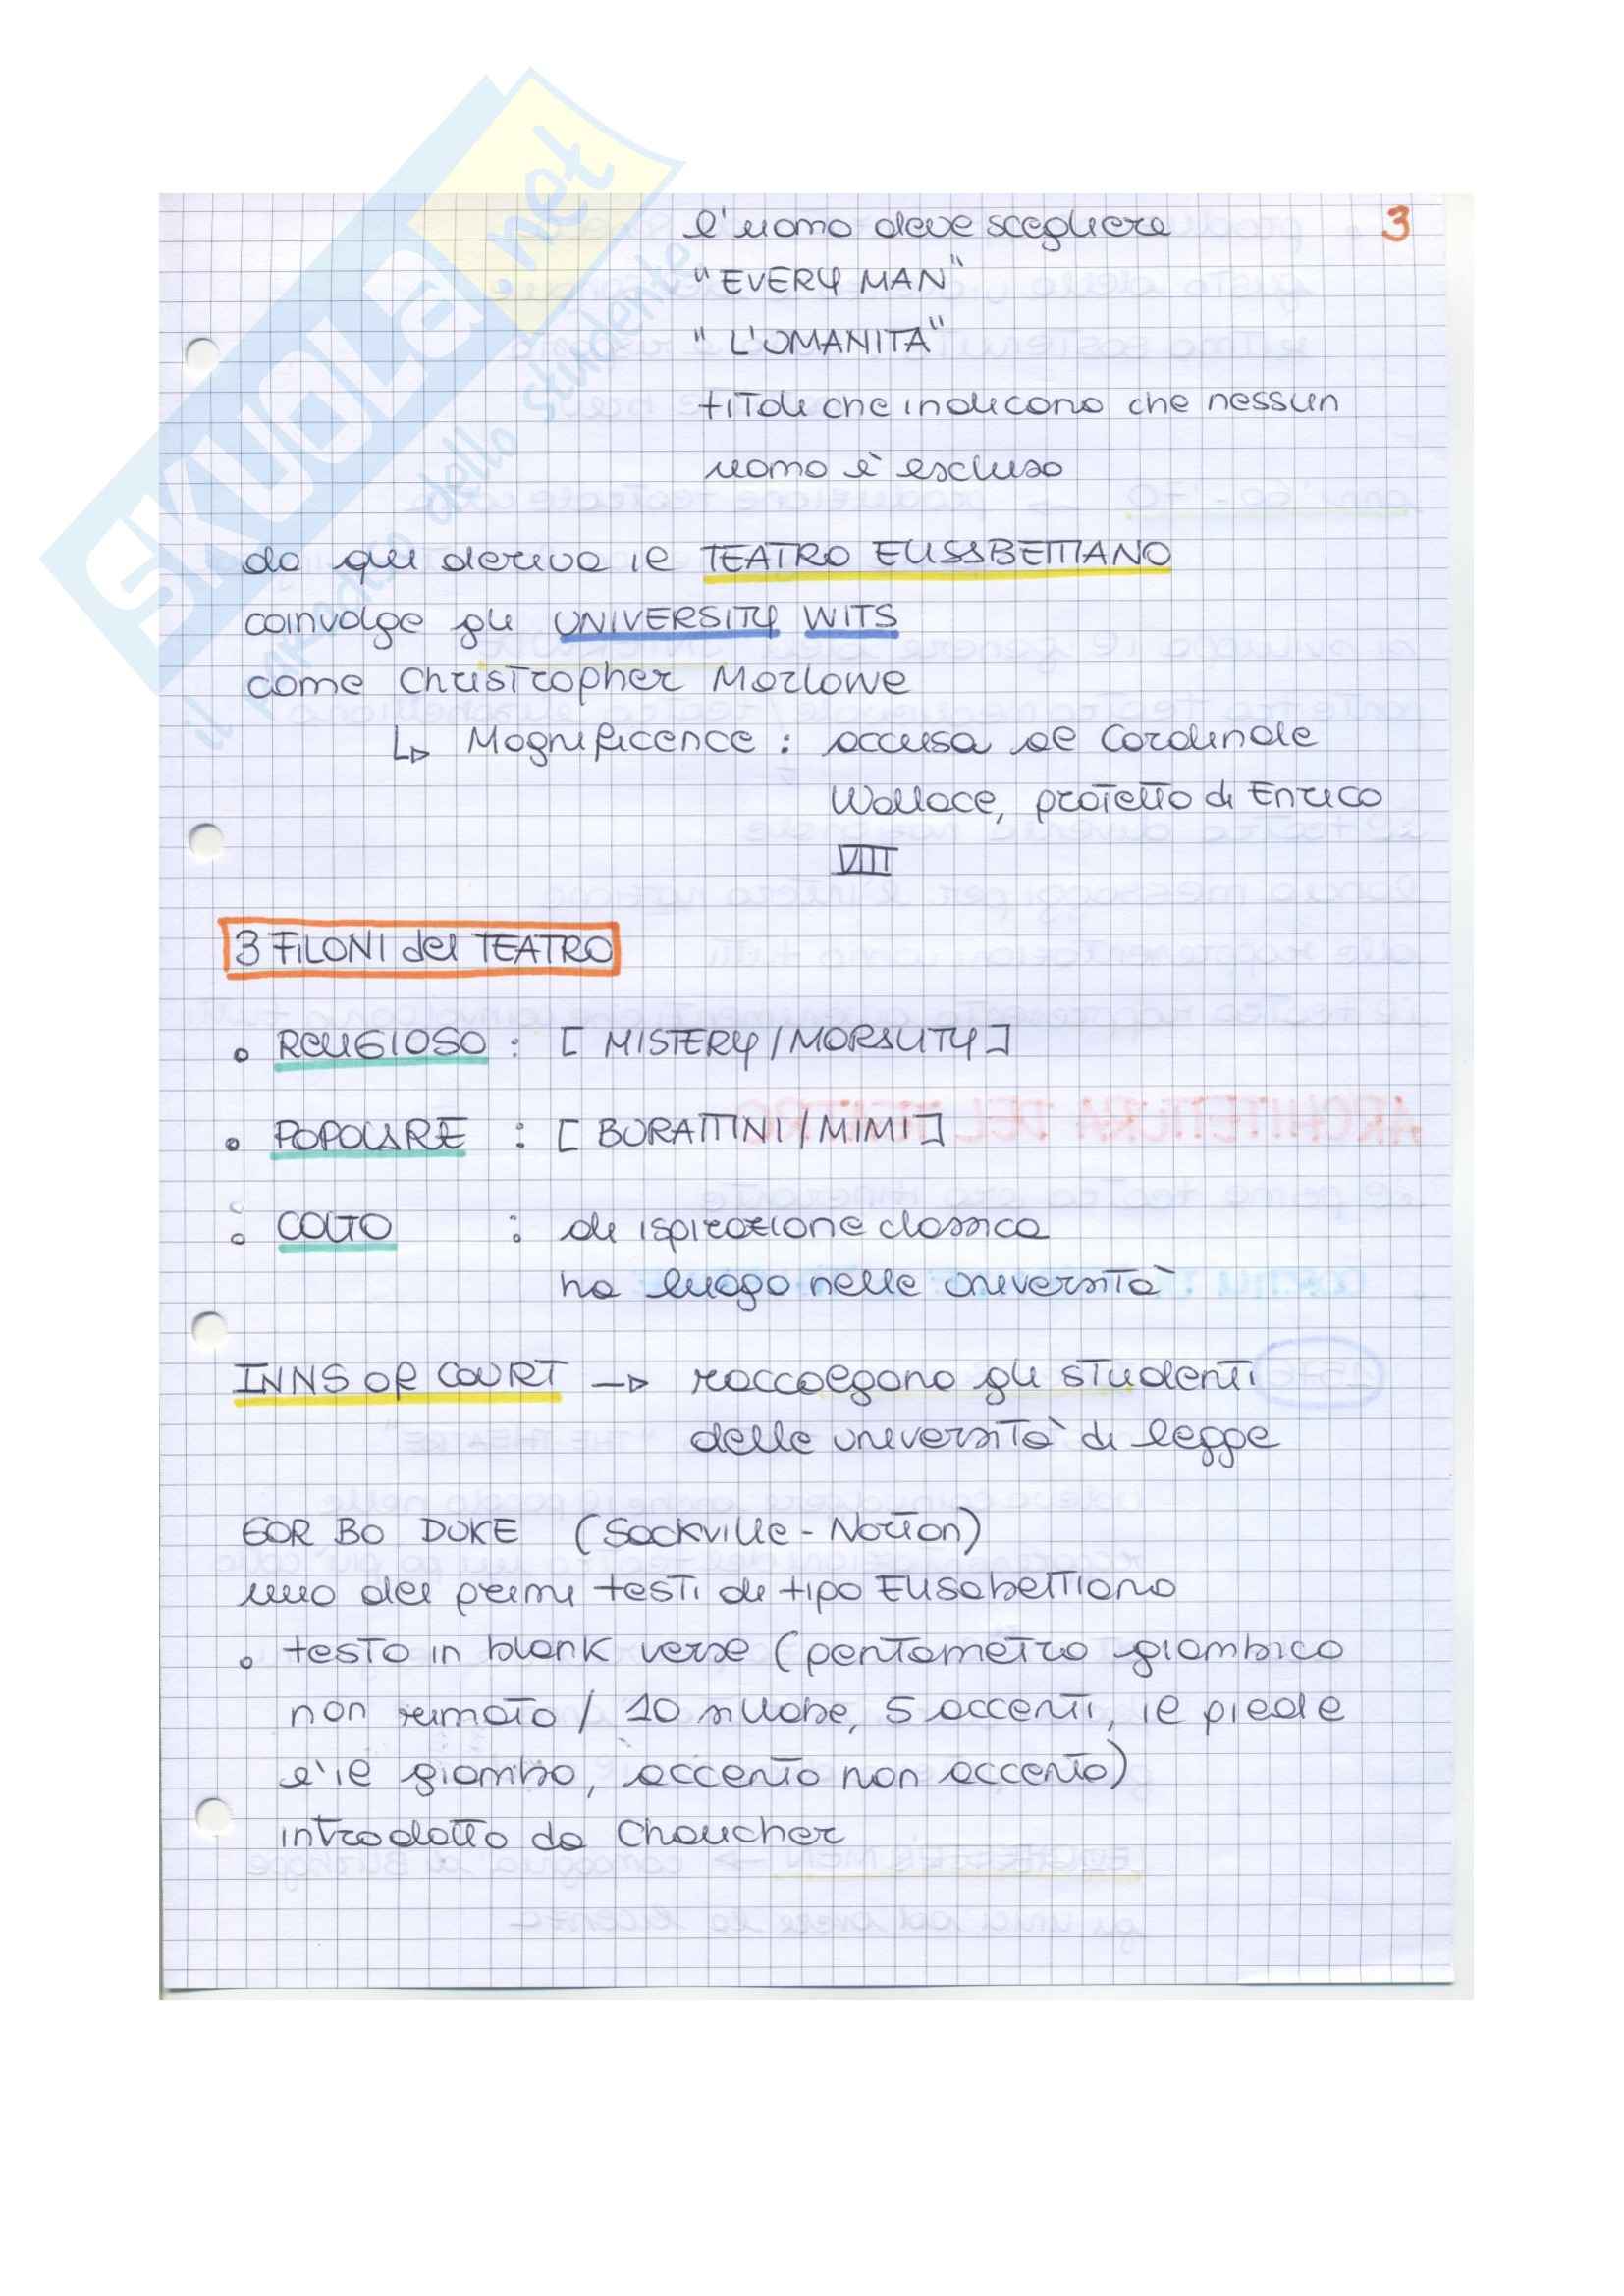 SKUOLA.net
il paradiso dello studente
3
l'uomo deve scegliere
"EVERY MAN"
"L'UMANITÀ"
titoli che indicano che nessun
uomo è escluso
da qui deriva il TEATRO ELISABETTIANO
coinvolge gli UNIVERSITY WITS
come Christropher Marlowe
Magnificence : accusa al Cardinale
Wallace, protetto di Enrico
VIII
3 FILONI del TEATRO
• RELIGIOSO : [ MISTERY / MORALITY ]
• POPOLARE : [ BURATTINI / MIMI ]
• COLTO : di ispirazione classica
ha luogo nelle università
INNS OF COURT → raccolgono gli studenti
delle università di legge
GOR BO DUKE (Sackville - Norton)
uno dei primi testi di tipo Elisabettiano
• testo in blank verse (pentametro giambico
non rimato / 10 sillabe, 5 accenti, il piede
è il giambo, accento non accento)
introdotto da Chaucher